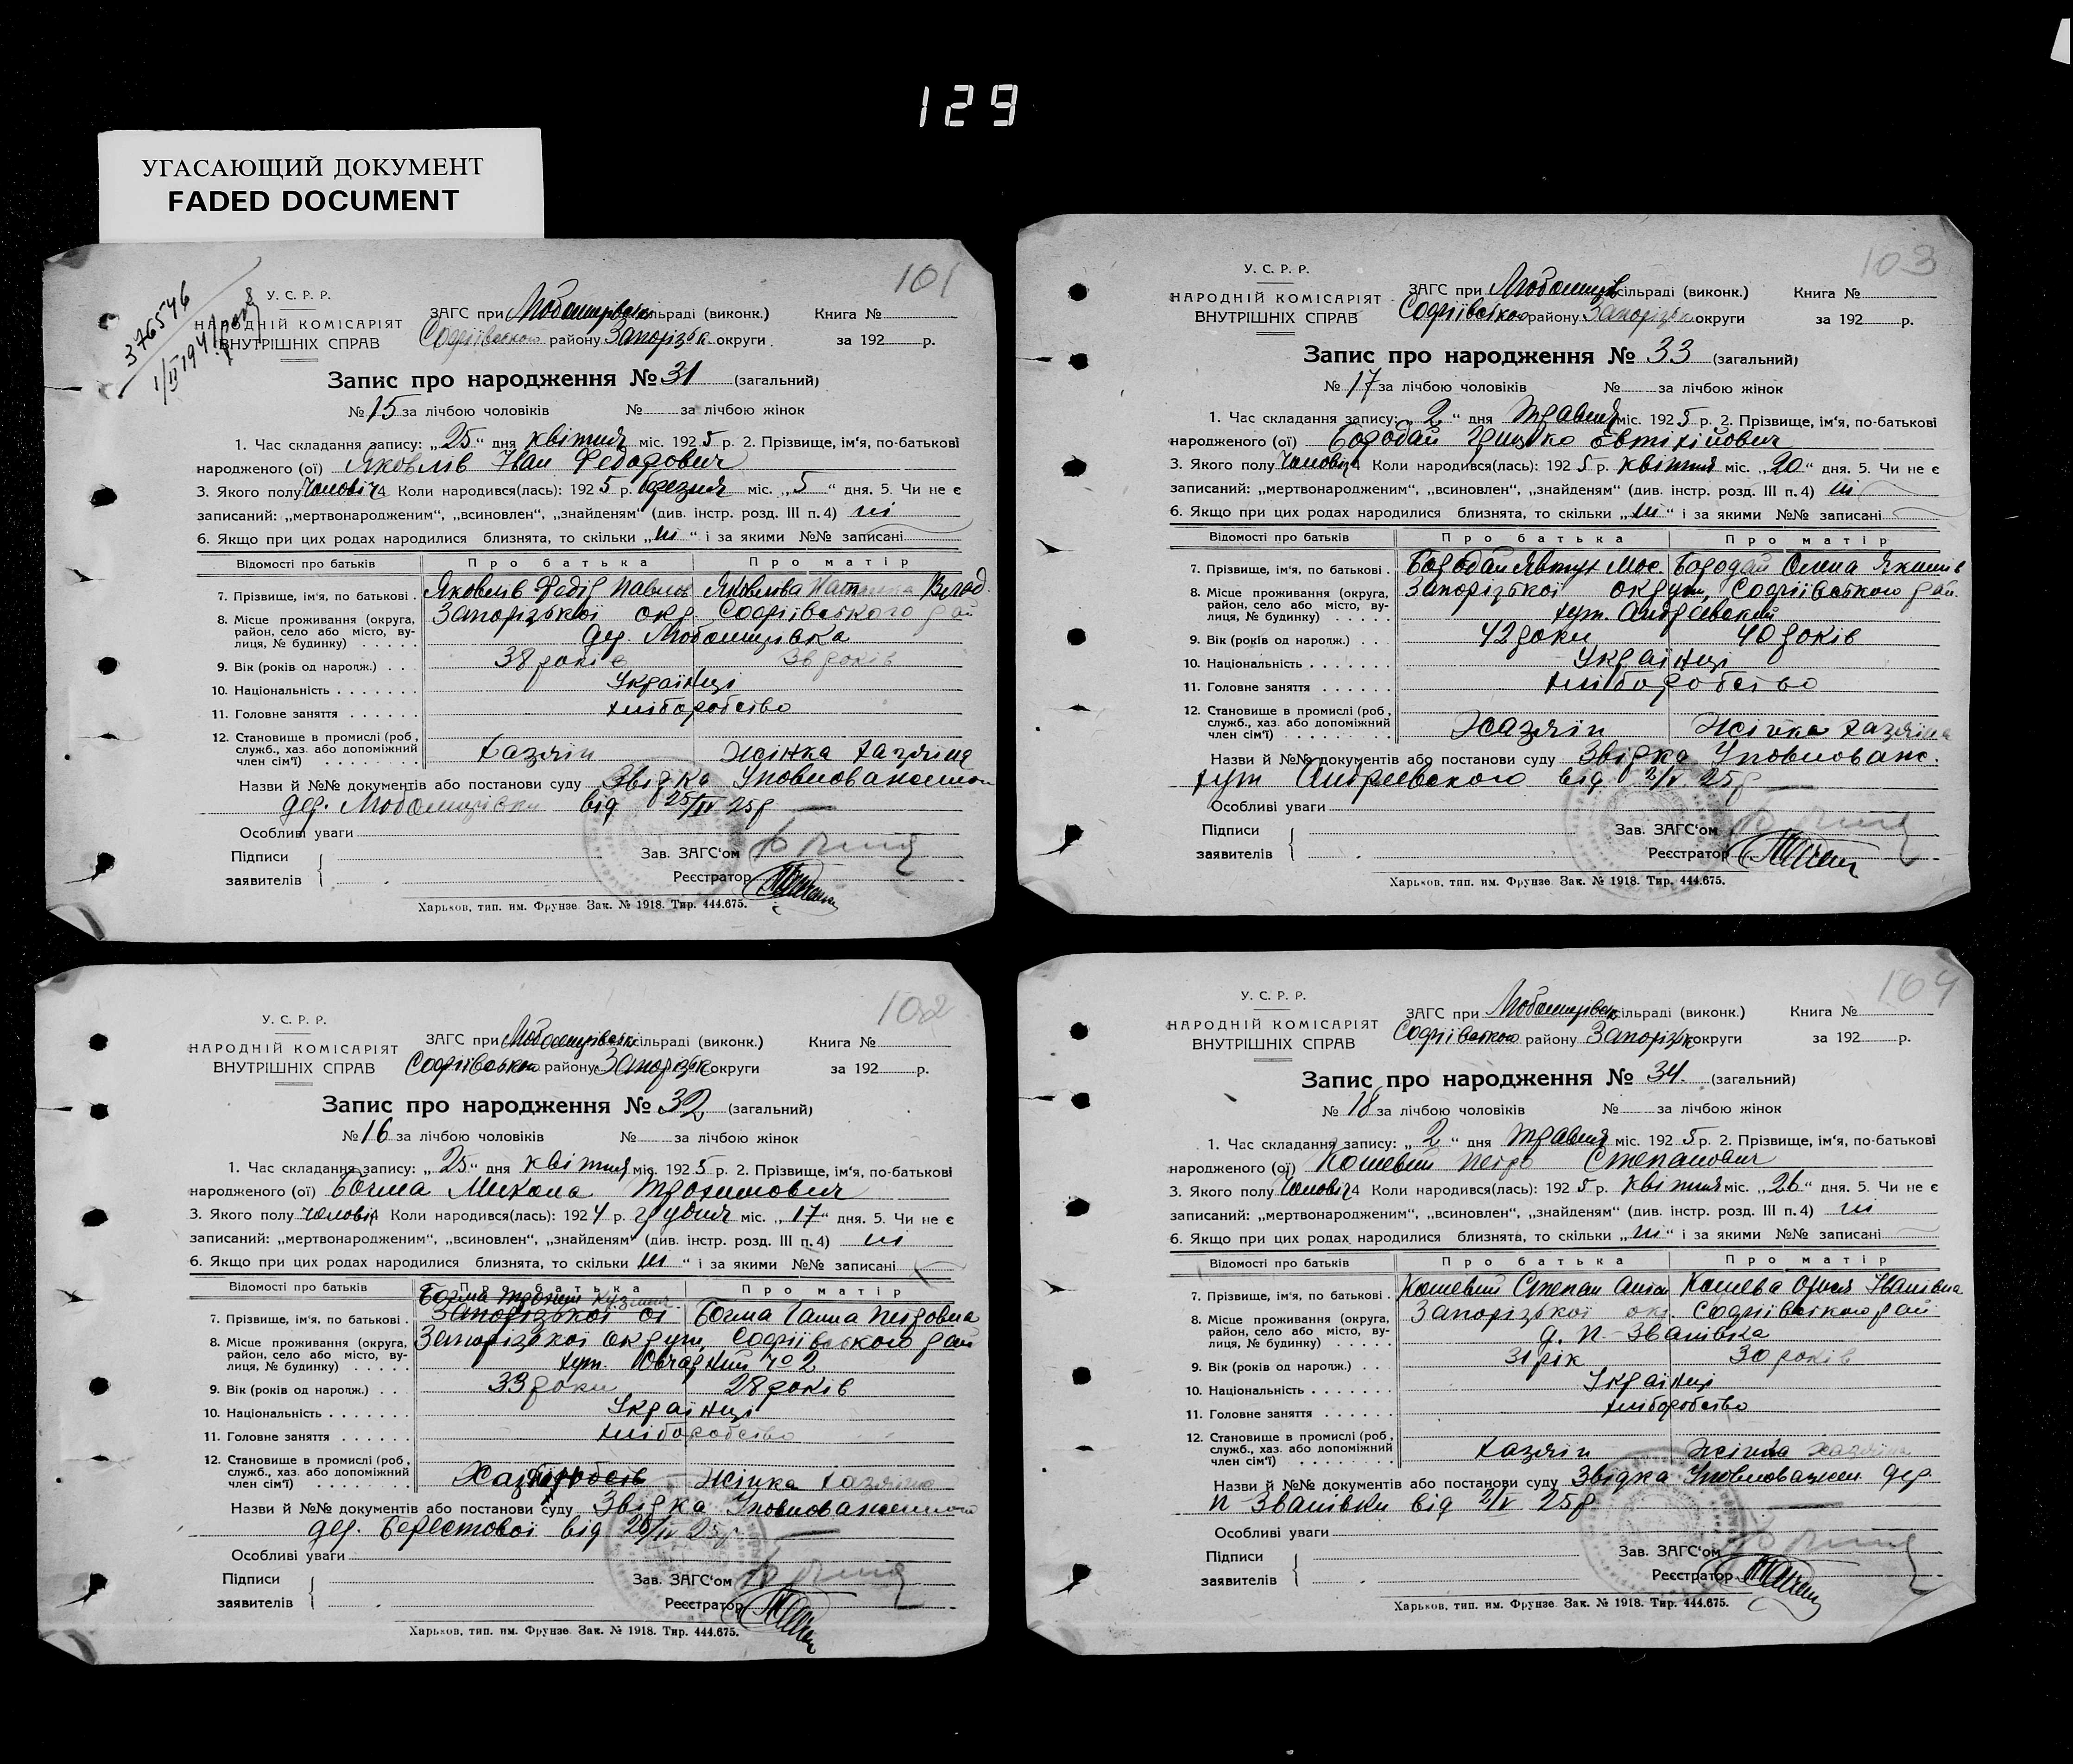 129
УГАСАЮЩИЙ ДОКУМЕНТ
FADED DOCUMENT
101
376546
У. С. Р. Р.
НАРОДНІЙ КОМІСАРІЯТ
ВНУТРІШНІХ СПРАВ
ЗАГС при Любомирівськ сільраді (виконк.) Книга №
Софіївського району Запорізьк округи за 192 р.
Запис про народження № 31 (загальний)
№ 15 за лічбою чоловіків № за лічбою жінок
1. Час складання запису: „25“ дня квітня міс. 1925 р. 2. Прізвище, ім‘я, по-батькові
народженого (ої) Яковлів Іван Федорович
3. Якого полу Чоловіч 4 Коли народився(лась): 1925 р. березня міс. „5“ дня. 5. Чи не є
записаний: „мертвонародженим“, „всиновлен“, „знайденям“ (див. інстр. розд. III п. 4) ні
6. Якщо при цих родах народилися близнята, то скільки „ні“ і за якими №№ записані
Відомості про батьків Про батька Про матір
7. Прізвище, ім‘я, по батькові Яковлів Федір Павлов Яковліва Влад
8. Місце проживання (округа, район, село або місто, вулиця, № будинку) Запорізької окр. Софіївського рай
дер. Любомирівка
9. Вік (років од нарож.) 38 років 36 років
10. Національність Українці
11. Головне заняття хліборобство
12. Становище в промислі (роб, служб., хаз. або допоміжний член сім‘ї) хазяїн жінка хазяїна
Назви й №№ документів або постанови суду Звідка Уповноваженого
дер. Любомирівки від 25/IV 25р
Особливі уваги
Підписи заявителів
Зав. ЗАГС‘ом
Реєстратор
Харьков, тип. им. Фрунзе Зак. № 1918. Тир. 444.675.
103
У. С. Р. Р.
НАРОДНІЙ КОМІСАРІЯТ
ВНУТРІШНІХ СПРАВ
ЗАГС при Любомирів сільраді (виконк.) Книга №
Софіївського району Запорізьк округи за 192 р.
Запис про народження № 33 (загальний)
№ 17 за лічбою чоловіків № за лічбою жінок
1. Час складання запису: „2“ дня травня міс. 1925 р. 2. Прізвище, ім‘я, по-батькові
народженого (ої) Бородай Грицько Євтихійович
3. Якого полу Чоловіч 4 Коли народився(лась): 1925 р. квітня міс. „20“ дня. 5. Чи не є
записаний: „мертвонародженим“, „всиновлен“, „знайденям“ (див. інстр. розд. III п. 4) ні
6. Якщо при цих родах народилися близнята, то скільки „ні“ і за якими №№ записані
Відомості про батьків Про батька Про матір
7. Прізвище, ім‘я, по батькові Бородай Явтух Мос. Бородай Олена Якимів
8. Місце проживання (округа, район, село або місто, вулиця, № будинку) Запорізької округи, Софіївського рай.
хут. Андреевский
9. Вік (років од нарож.) 42 роки 40 років
10. Національність Українці
11. Головне заняття хліборобство
12. Становище в промислі (роб, служб., хаз. або допоміжний член сім‘ї) Хазяїн жінка хазяїна
Назви й №№ документів або постанови суду Звідка Уповноваж.
хут Андреевского від 2/V. 25р
Особливі уваги
Підписи заявителів
Зав. ЗАГС‘ом
Реєстратор
Харьков, тип. им. Фрунзе Зак. № 1918. Тир. 444.675.
102
У. С. Р. Р.
НАРОДНІЙ КОМІСАРІЯТ
ВНУТРІШНІХ СПРАВ
ЗАГС при Любомирівськ сільраді (виконк.) Книга №
Софіївського району Запорізьк округи за 192 р.
Запис про народження № 32 (загальний)
№ 16 за лічбою чоловіків № за лічбою жінок
1. Час складання запису: „25“ дня квітня міс. 1925 р. 2. Прізвище, ім‘я, по-батькові
народженого (ої) Бочма Микола Трохимович
3. Якого полу чоловіч 4 Коли народився(лась): 1924 р. грудня міс. „17“ дня. 5. Чи не є
записаний: „мертвонародженим“, „всиновлен“, „знайденям“ (див. інстр. розд. III п. 4) ні
6. Якщо при цих родах народилися близнята, то скільки „ні“ і за якими №№ записані
Відомості про батьків Про батька Про матір
Бочма Трохим Кузмич
7. Прізвище, ім‘я, по батькові Запорізької ок Бочма Ганна Петровна
8. Місце проживання (округа, район, село або місто, вулиця, № будинку) Запорізької округи, Софіївського рай
хут. Овчарний № 2
9. Вік (років од нарож.) 33 роки 28 років
10. Національність Українці
11. Головне заняття хліборобство
12. Становище в промислі (роб, служб., хаз. або допоміжний член сім‘ї) жінка хазяїна
Назви й №№ документів або постанови суду Звідка Уповноваженого
дер. Берестової від 25/IV 25р
Особливі уваги
Підписи заявителів
Зав. ЗАГС‘ом
Реєстратор
Харьков, тип. им. Фрунзе Зак. № 1918. Тир. 444.675.
104
У. С. Р. Р.
НАРОДНІЙ КОМІСАРІЯТ
ВНУТРІШНІХ СПРАВ
ЗАГС при Любомирівськ сільраді (виконк.) Книга №
Софіївського району Запорізьк округи за 192 р.
Запис про народження № 34. (загальний)
№ 18 за лічбою чоловіків № за лічбою жінок
1. Час складання запису: „2“ дня травня міс. 1925 р. 2. Прізвище, ім‘я, по-батькові
народженого (ої) Кошевий Петро Степанович
3. Якого полу Чоловіч 4 Коли народився(лась): 1925 р. квітня міс. „26“ дня. 5. Чи не є
записаний: „мертвонародженим“, „всиновлен“, „знайденям“ (див. інстр. розд. III п. 4) ні
6. Якщо при цих родах народилися близнята, то скільки „ні“ і за якими №№ записані
Відомості про батьків Про батька Про матір
7. Прізвище, ім‘я, по батькові Кошевий Степан Антон Кошева Орися Іванівна
8. Місце проживання (округа, район, село або місто, вулиця, № будинку) Запорізької окр. Софіївського рай
д. П-Званівка
9. Вік (років од нарож.) 31 рік 30 років
10. Національність Українці
11. Головне заняття хліборобство
12. Становище в промислі (роб, служб., хаз. або допоміжний член сім‘ї) хазяїн жінка хазяїна
Назви й №№ документів або постанови суду Звідка Уповноважен. дер.
П-Званівки від 2/V 25р
Особливі уваги
Підписи заявителів
Зав. ЗАГС‘ом
Реєстратор
Харьков, тип. им. Фрунзе Зак. № 1918. Тир. 444.675.